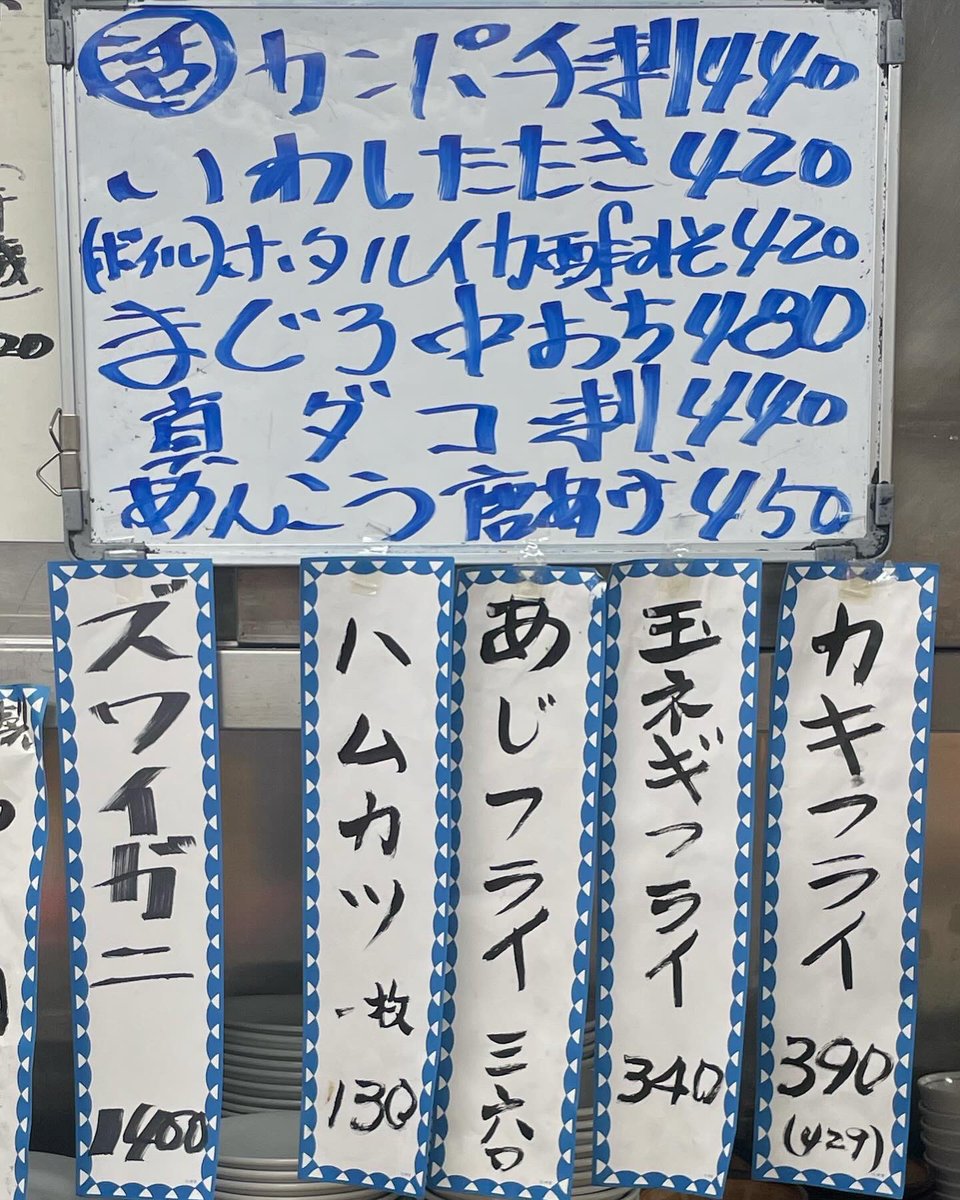 活 カンパチ刺 440
いわしたたき 420
(ボイル)ホタルイカ酢みそ 420
まぐろ中おち 480
真ダコ刺 440
あんこう唐あげ 450
カキフライ 390 (429)
玉ネギフライ 340
あじフライ 三六〇
ハムカツ 一枚 130
ズワイガニ 1400